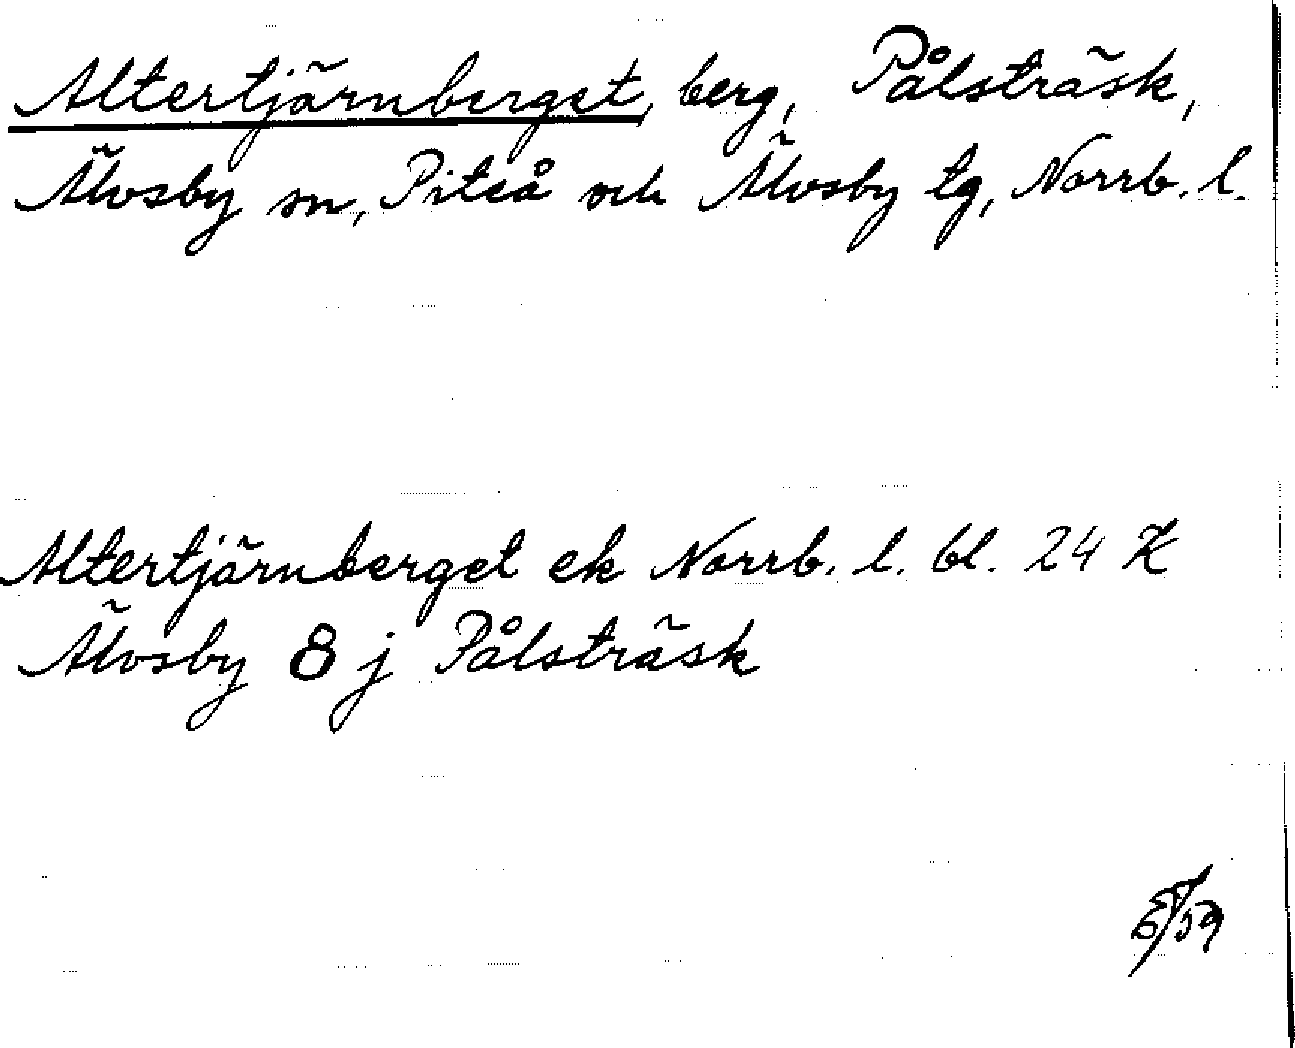 Altertjärnberget, berg, Pålsträsk,
Älvsby sn, Piteå och Älvsby tg, Norrb. l.
Altertjärnberget ek Norrb. l. bl. 24 K
Älvsby 8 j Pålsträsk